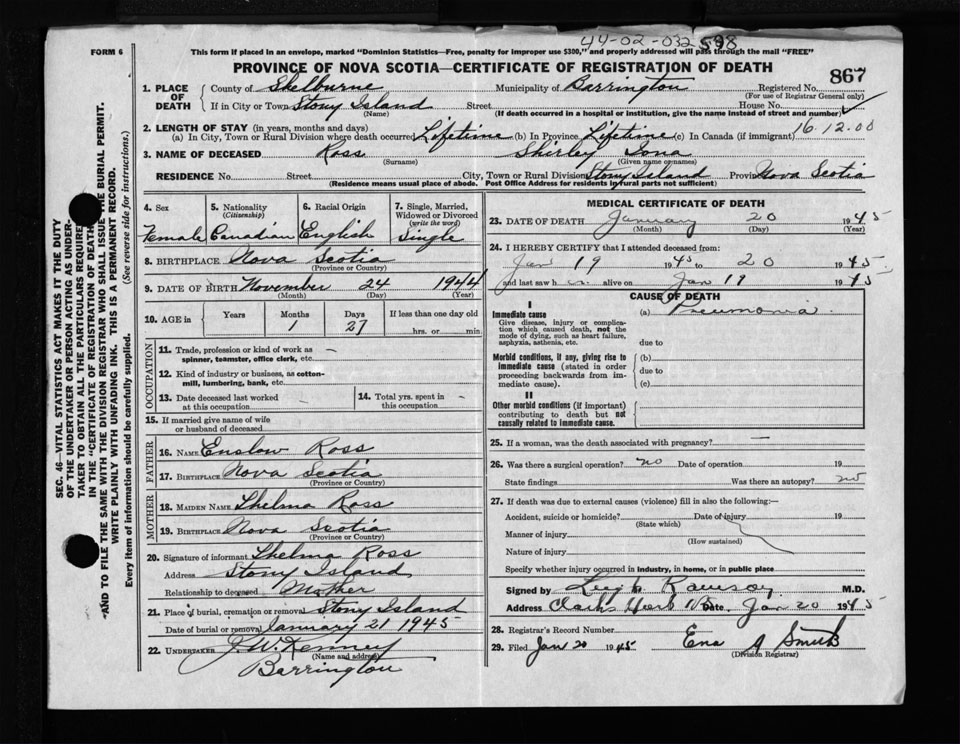 44-02-032598
FORM 6
This form if placed in an envelope, marked "Dominion Statistics—Free, penalty for improper use $300," and properly addressed will pass through the mail "FREE"
PROVINCE OF NOVA SCOTIA—CERTIFICATE OF REGISTRATION OF DEATH
867
1. PLACE OF DEATH
County of Shelburne Municipality of Barrington Registered No.
(For use of Registrar General only)
If in City or Town Stony Island Street House No.
(Name) (If death occurred in a hospital or institution, give the name instead of street and number)
2. LENGTH OF STAY (in years, months and days)
(a) In City, Town or Rural Division where death occurred Lifetime (b) In Province Lifetime (c) In Canada (if immigrant) 16.12.00
3. NAME OF DECEASED Ross Shirley Iona
(Surname) (Given name or names)
RESIDENCE No. Street City, Town or Rural Division Stony Island Province Nova Scotia
(Residence means usual place of abode. Post Office Address for residents in rural parts not sufficient)
4. Sex
Female
5. Nationality
(Citizenship)
Canadian
6. Racial Origin
English
7. Single, Married, Widowed or Divorced
(write the word)
Single
8. BIRTHPLACE Nova Scotia
(Province or Country)
9. DATE OF BIRTH November 24 1944
(Month) (Day) (Year)
10. AGE in Years Months Days If less than one day old
1 27 hrs. or min.
OCCUPATION
11. Trade, profession or kind of work as —
spinner, teamster, office clerk, etc.
12. Kind of industry or business, as cotton-
mill, lumbering, bank, etc.
13. Date deceased last worked
at this occupation
14. Total yrs. spent in
this occupation
15. If married give name of wife
or husband of deceased
FATHER
16. NAME Enslow Ross
17. BIRTHPLACE Nova Scotia
(Province or Country)
MOTHER
18. MAIDEN NAME Thelma Ross
19. BIRTHPLACE Nova Scotia
(Province or Country)
20. Signature of informant Thelma Ross
Address Stony Island
Relationship to deceased Mother
21. Place of burial, cremation or removal Stony Island
Date of burial or removal January 21 1945
22. UNDERTAKER J. W. Kenney
(Name and address)
Barrington
MEDICAL CERTIFICATE OF DEATH
23. DATE OF DEATH January 20 1945
(Month) (Day) (Year)
24. I HEREBY CERTIFY that I attended deceased from:
Jan 19 1945 to 20 1945
and last saw her alive on Jan 19 1945
CAUSE OF DEATH
I
Immediate cause
Give disease, injury or complication which caused death, not the mode of dying, such as heart failure, asphyxia, asthenia, etc.
(a) Pneumonia
due to
Morbid conditions, if any, giving rise to immediate cause (stated in order proceeding backwards from immediate cause).
(b)
due to
(c)
II
Other morbid conditions (if important) contributing to death but not causally related to immediate cause.
25. If a woman, was the death associated with pregnancy? —
26. Was there a surgical operation? no Date of operation 19
State findings Was there an autopsy? no
27. If death was due to external causes (violence) fill in also the following:—
Accident, suicide or homicide? Date of injury 19
(State which)
Manner of injury
(How sustained)
Nature of injury
Specify whether injury occurred in industry, in home, or in public place
Signed by M.D.
Address Clarks Harb NS Date Jan 20 1945
28. Registrar's Record Number
29. Filed Jan 20 1945 Ena A Smith
(Division Registrar)
SEC. 46—VITAL STATISTICS ACT MAKES IT THE DUTY
OF THE UNDERTAKER OR PERSON ACTING AS UNDER-
TAKER TO OBTAIN ALL THE PARTICULARS REQUIRED
IN THE "CERTIFICATE OF REGISTRATION OF DEATH"
AND TO FILE THE SAME WITH THE DIVISION REGISTRAR WHO SHALL ISSUE THE BURIAL PERMIT.
WRITE PLAINLY WITH UNFADING INK. THIS IS A PERMANENT RECORD.
Every item of information should be carefully supplied. (See reverse side for instructions.)